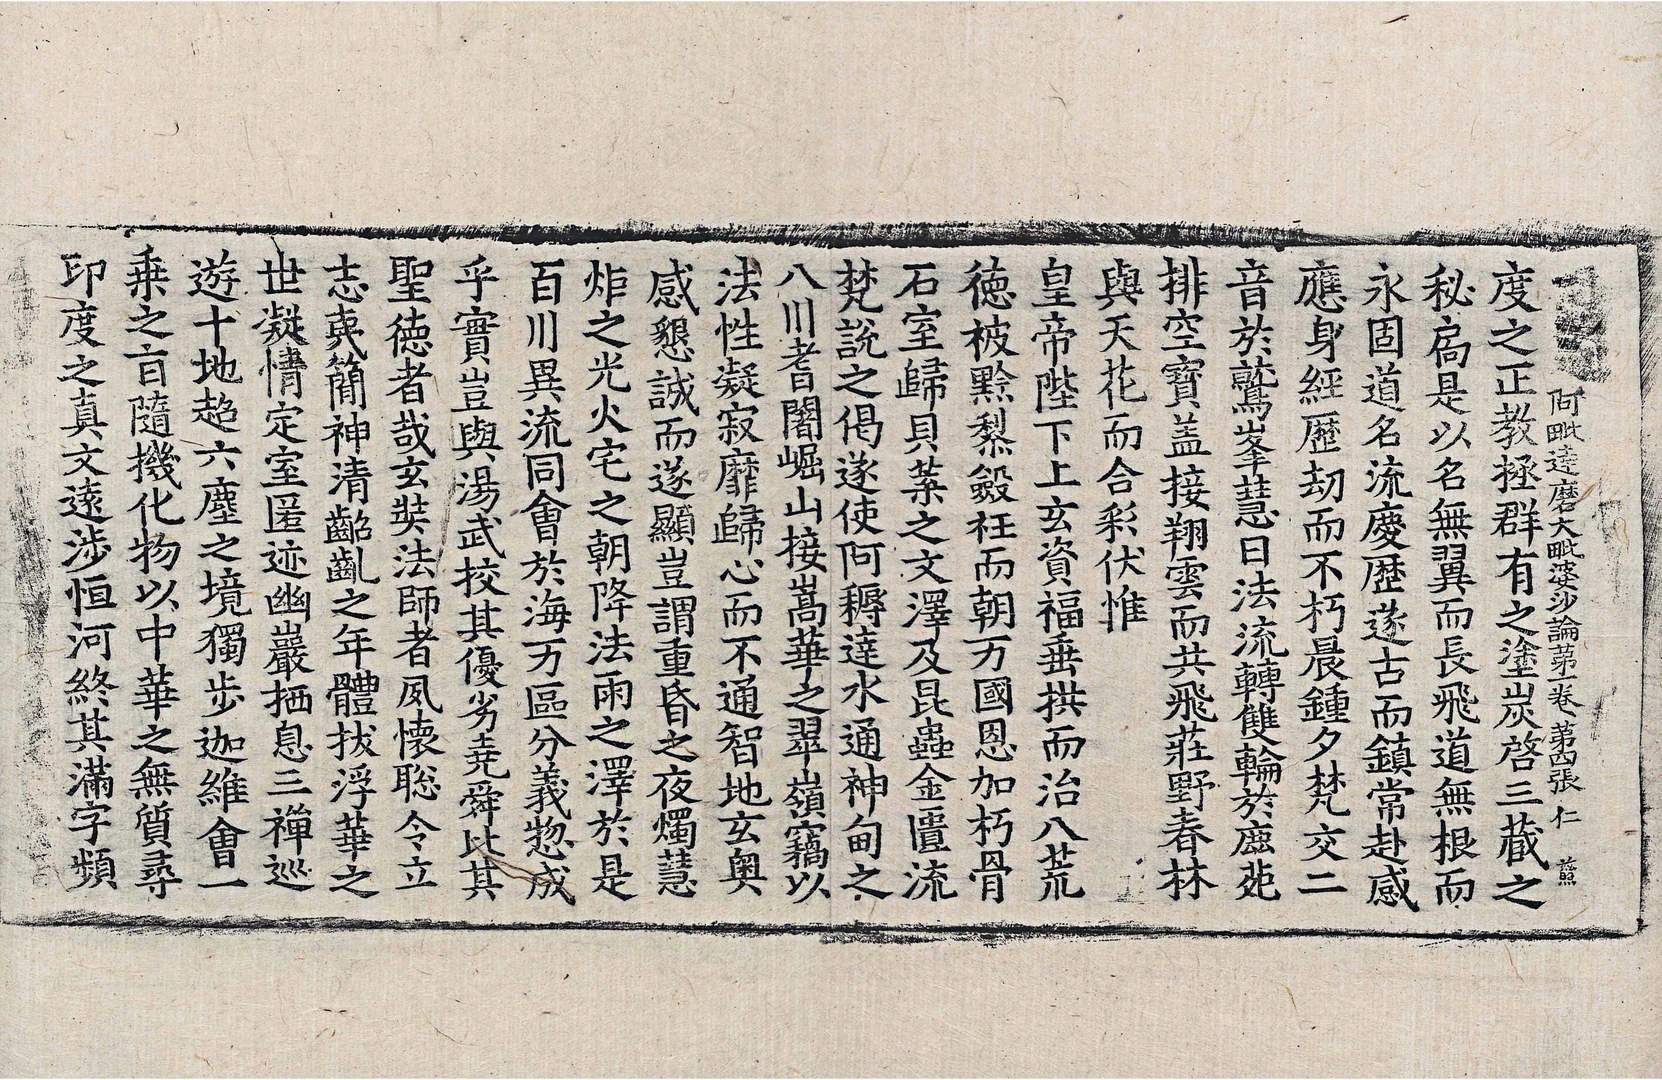 阿毗達磨大毗婆沙論苐一卷 苐四張 仁
度之正教拯群有之塗炭啓三藏之
秘扃是以名無翼而長飛道無根而
永固道名流慶歷遂古而鎮常赴感
應身經歷劫而不朽晨鍾夕梵交二
音於鷲峯慧日法流轉雙輪於鹿苑
排空寶盖接翔雲而共飛莊野春林
與天花而合彩伏惟
皇帝陛下上玄資福垂拱而治八荒
德被黔黎斂衽而朝万國恩加朽骨
石室歸貝葉之文澤及昆蟲金匱流
梵說之偈遂使阿耨達水通神甸之
八川耆闍崛山接嵩華之翠嶺竊以
法性凝寂靡歸心而不通智地玄奧
感懇誠而遂顯豈謂重昏之夜燭慧
炬之光火宅之朝降法雨之澤於是
百川異流同會於海万區分義惣成
乎實豈與湯武挍其優劣堯舜比其
聖德者哉玄奘法師者夙懷聡令立
志夷簡神清齠齔之年體拔浮華之
世凝情定室匿迹幽巖栖息三禪巡
遊十地超六塵之境獨步迦維會一
乘之旨隨機化物以中華之無質尋
印度之真文遠涉恒河終其滿字頻